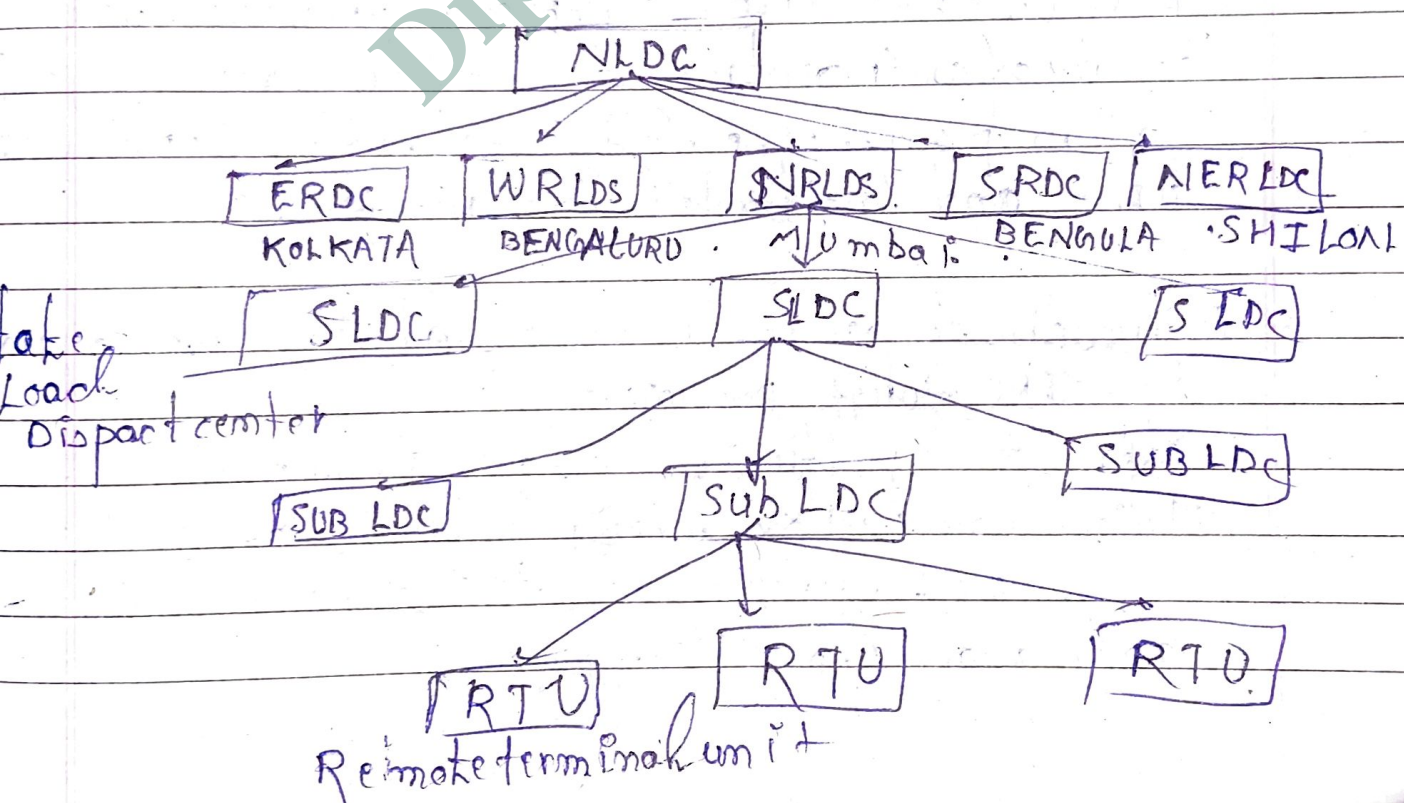 Dip
NLDC
ERDC WRLDS NRLDS SRDC NERLDC
KOLKATA BENGALURU. Mumbai. BENGULA .SHILONI
SLDC SLDC SLDC
tate
Load
Dispart center
SUB LDC Sub LDC SUB LDC
RTU RTU RTU
Reimote terminal unit